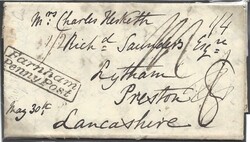 Mrs Charles Hesketh
Richd Saunders Esqre
Lytham
Preston
Lancashire
Farnham
Penny Post
May 30th
1/4
8